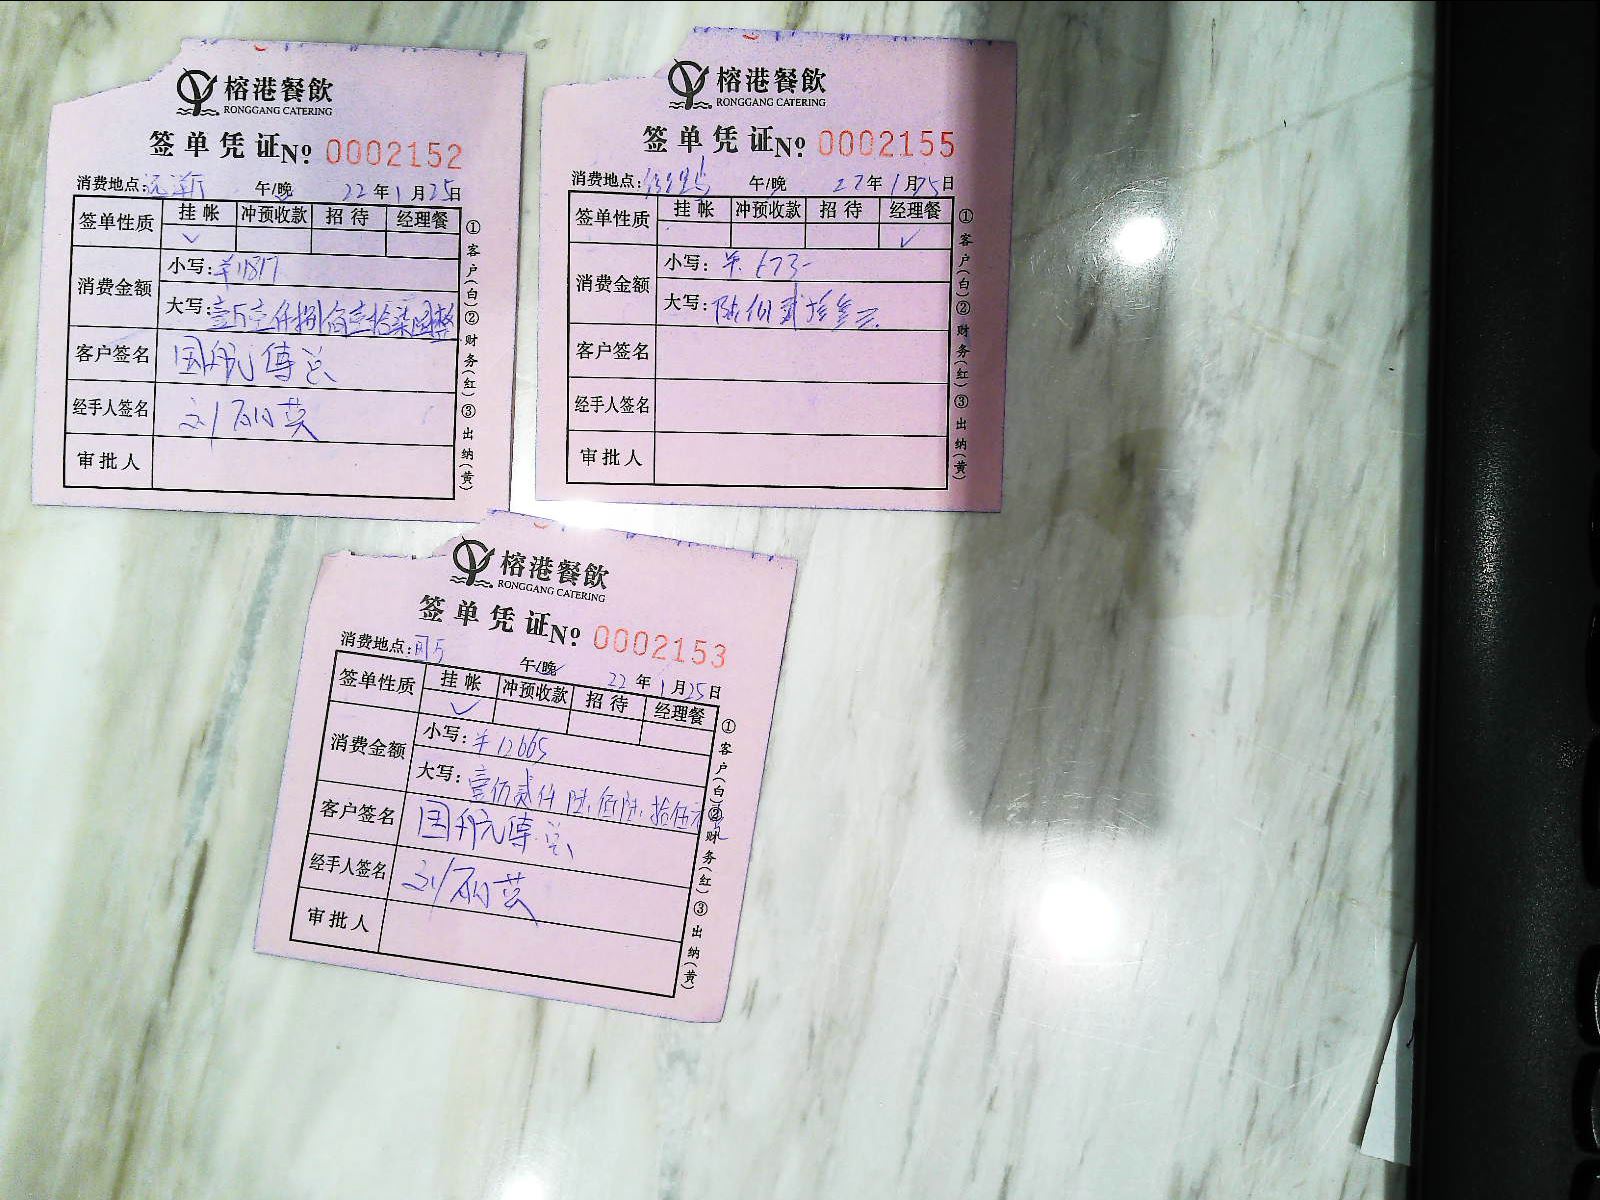 榕港餐飲
RONGGANG CATERING
签单凭证 No: 0002152
消费地点: 午/晚 22年1月25日
签单性质 挂帐 冲预收款 招待 经理餐
✓
消费金额 小写:¥11817
大写:壹万壹仟捌佰壹拾柒圆整
客户签名 国航傅总
经手人签名 刘丽英
审批人
①客户(白)②财务(红)③出纳(黄)
榕港餐飲
RONGGANG CATERING
签单凭证 No: 0002155
消费地点: 午/晚 22年1月25日
签单性质 挂帐 冲预收款 招待 经理餐
✓
消费金额 小写:¥
大写:陆佰贰拾叁元
客户签名
经手人签名
审批人
①客户(白)②财务(红)③出纳(黄)
榕港餐飲
RONGGANG CATERING
签单凭证 No: 0002153
消费地点: 午/晚 22年1月25日
签单性质 挂帐 冲预收款 招待 经理餐
✓
消费金额 小写:¥12665
大写:壹万贰仟陆佰陆拾伍元
客户签名 国航傅总
经手人签名 刘丽英
审批人
①客户(白)②财务(红)③出纳(黄)